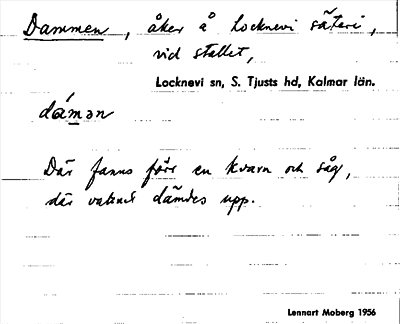 Dammen, åker å Locknevi säteri,
vid stallet,
Locknevi sn, S. Tjusts hd, Kalmar län.
dámən
Där fanns förr en kvarn och såg,
där vattnet dämdes upp.
Lennart Moberg 1956